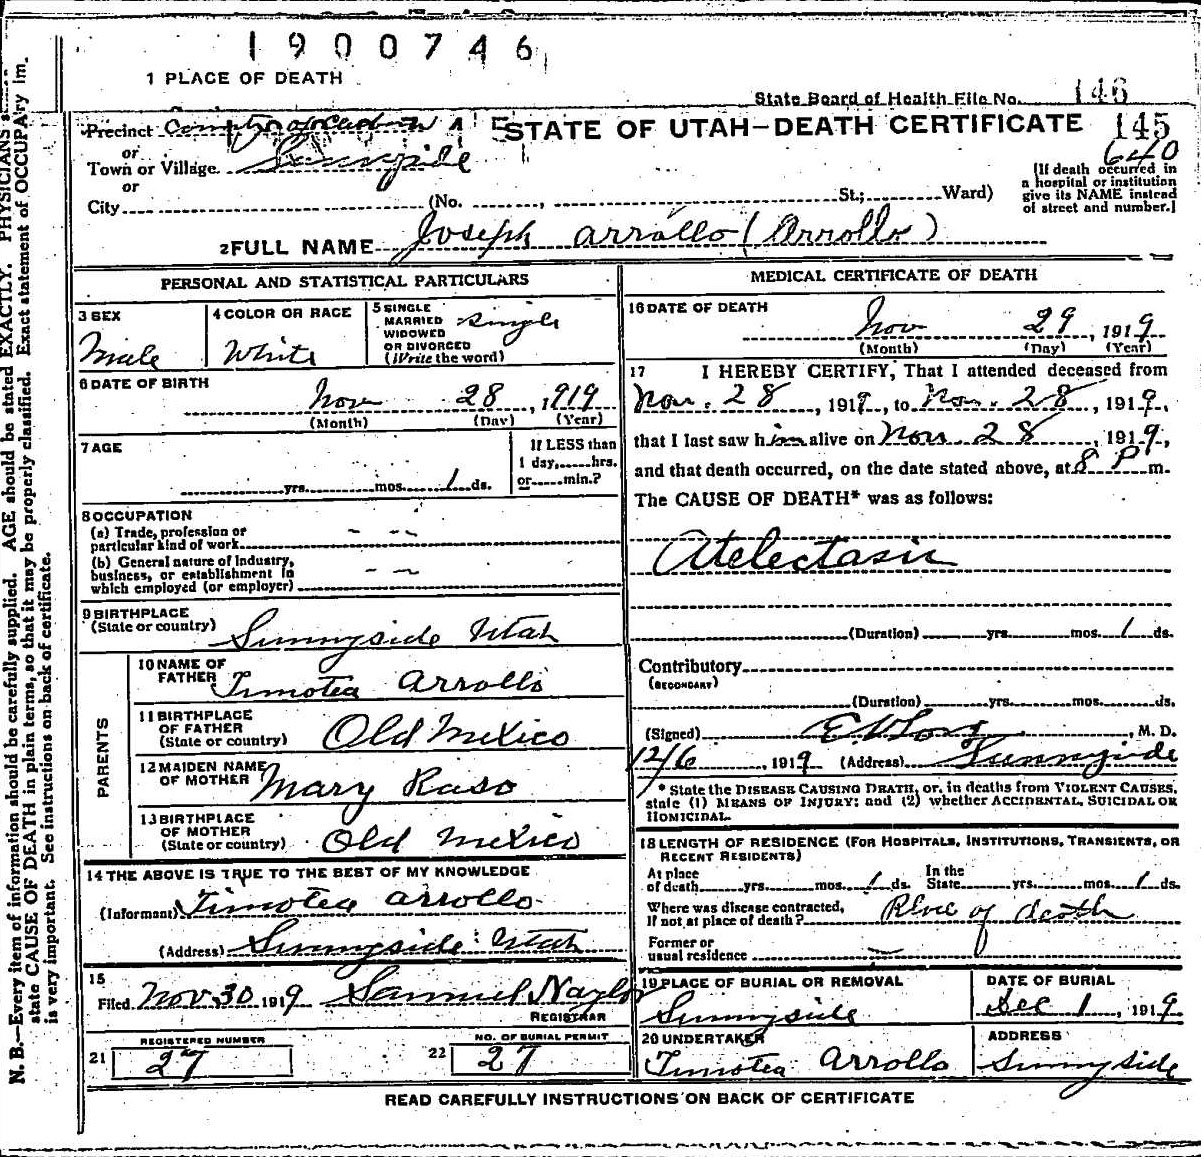 1900746
1 PLACE OF DEATH
State Board of Health File No. 146
Precinct STATE OF UTAH—DEATH CERTIFICATE 145
or
Town or Village Sunnyside 640
or
City (No. , St.; Ward)
[If death occurred in
a hospital or institution
give its NAME instead
of street and number.]
2 FULL NAME Joseph Arrollo (Arrollo)
PERSONAL AND STATISTICAL PARTICULARS
3 SEX
Male
4 COLOR OR RACE
White
5 SINGLE
MARRIED
WIDOWED
OR DIVORCED
(Write the word)
Single
6 DATE OF BIRTH
Nov 28, 1919
(Month) (Day) (Year)
7 AGE
yrs. mos. 1 ds.
If LESS than
1 day, hrs.
or min.?
8 OCCUPATION
(a) Trade, profession or
particular kind of work - --
(b) General nature of Industry,
business, or establishment in
which employed (or employer) - --
9 BIRTHPLACE
(State or country) Sunnyside Utah
PARENTS
10 NAME OF
FATHER Timotea Arrollo
11 BIRTHPLACE
OF FATHER
(State or country) Old Mexico
12 MAIDEN NAME
OF MOTHER Mary Raso
13 BIRTHPLACE
OF MOTHER
(State or country) Old Mexico
14 THE ABOVE IS TRUE TO THE BEST OF MY KNOWLEDGE
(Informant) Timotea Arrollo
(Address) Sunnyside Utah
15
Filed Nov 30 1919 Samuel Naylor
REGISTRAR
REGISTERED NUMBER
21 27
NO. OF BURIAL PERMIT
22 27
MEDICAL CERTIFICATE OF DEATH
16 DATE OF DEATH
Nov 29, 1919
(Month) (Day) (Year)
17 I HEREBY CERTIFY, That I attended deceased from
Nov. 28, 1919, to Nov. 28, 1919,
that I last saw him alive on Nov. 28, 1919,
and that death occurred, on the date stated above, at 8 P m.
The CAUSE OF DEATH* was as follows:
Atelectasis
(Duration) yrs. mos. 1 ds.
Contributory
(SECONDARY)
(Duration) yrs. mos. ds.
(Signed) , M. D.
12/6, 1919 (Address) Sunnyside
* State the DISEASE CAUSING DEATH, or, in deaths from VIOLENT CAUSES,
state (1) MEANS OF INJURY; and (2) whether ACCIDENTAL, SUICIDAL OR
HOMICIDAL.
18 LENGTH OF RESIDENCE (FOR HOSPITALS, INSTITUTIONS, TRANSIENTS, OR
RECENT RESIDENTS)
At place
of death yrs. mos. 1 ds.
In the
State yrs. mos. 1 ds.
Where was disease contracted,
If not at place of death? Place of death
Former or
usual residence
19 PLACE OF BURIAL OR REMOVAL
Sunnyside
DATE OF BURIAL
Dec 1, 1919
20 UNDERTAKER
Timotea Arrollo
ADDRESS
Sunnyside
READ CAREFULLY INSTRUCTIONS ON BACK OF CERTIFICATE
N. B.—Every item of information should be carefully supplied. AGE should be stated EXACTLY. PHYSICIANS
state CAUSE OF DEATH in plain terms, so that it may be properly classified. Exact statement of OCCUPATION im.
is very important. See instructions on back of certificate.